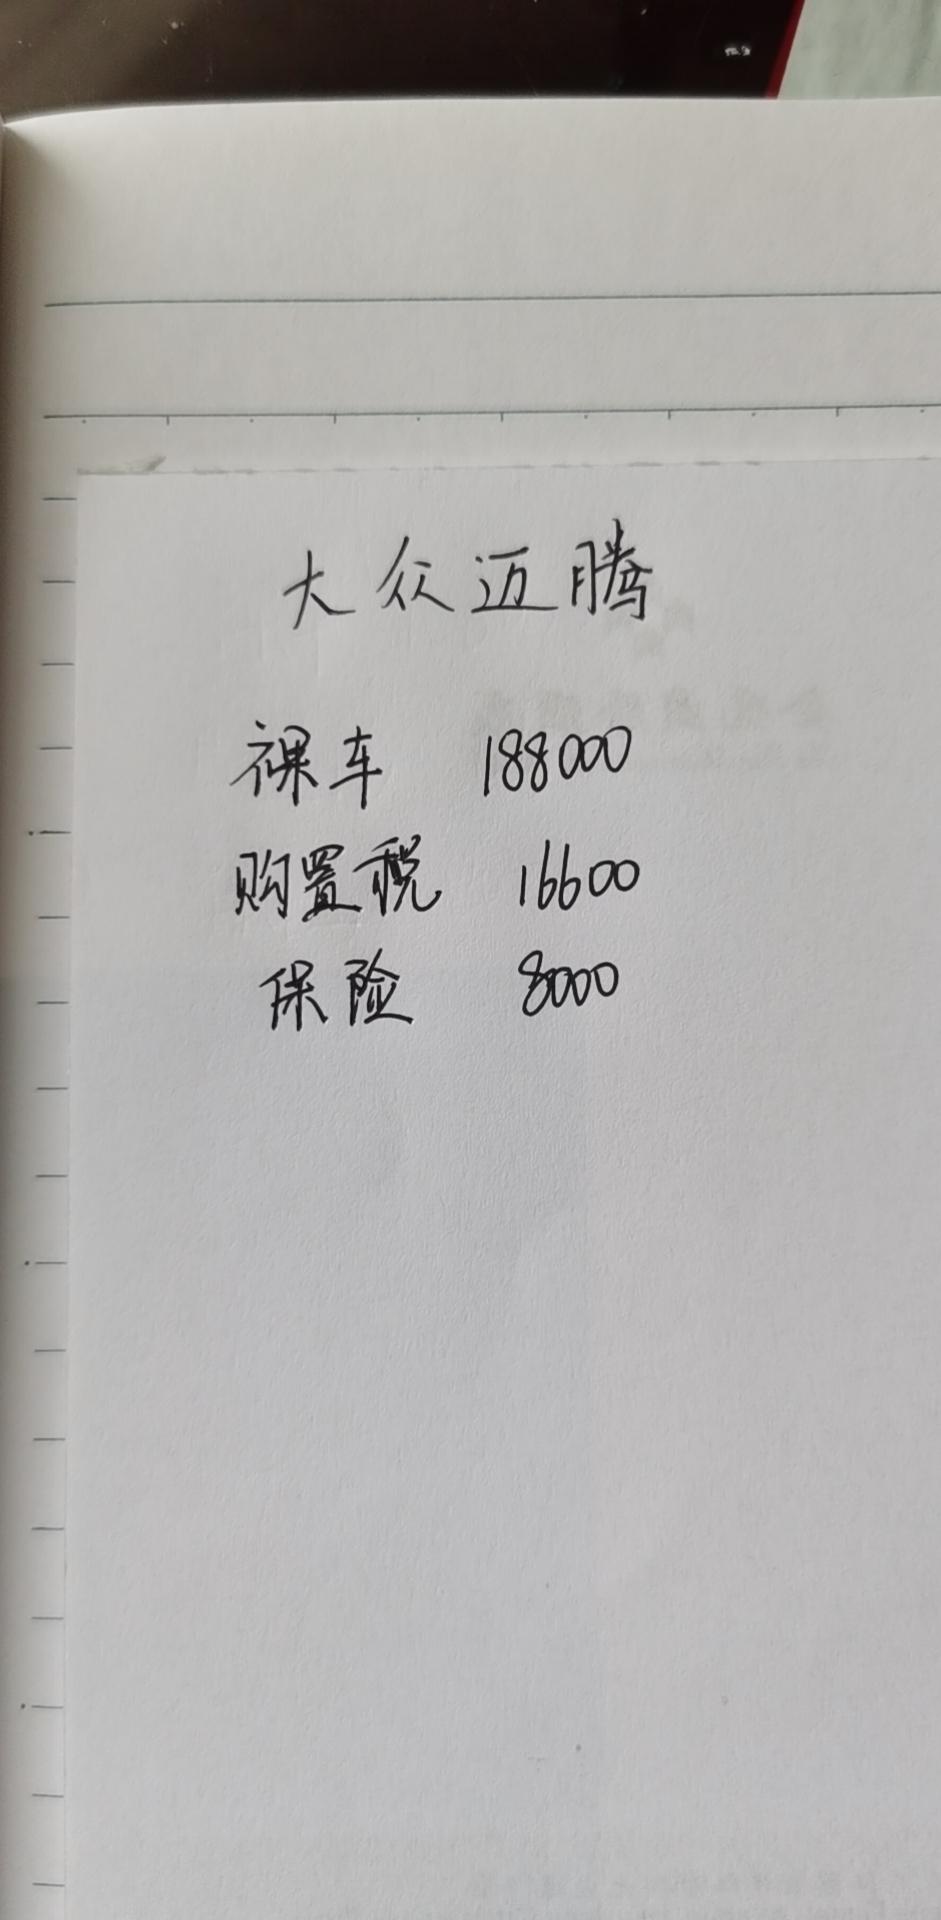 大众迈腾
裸车 188000
购置税 16600
保险 8000